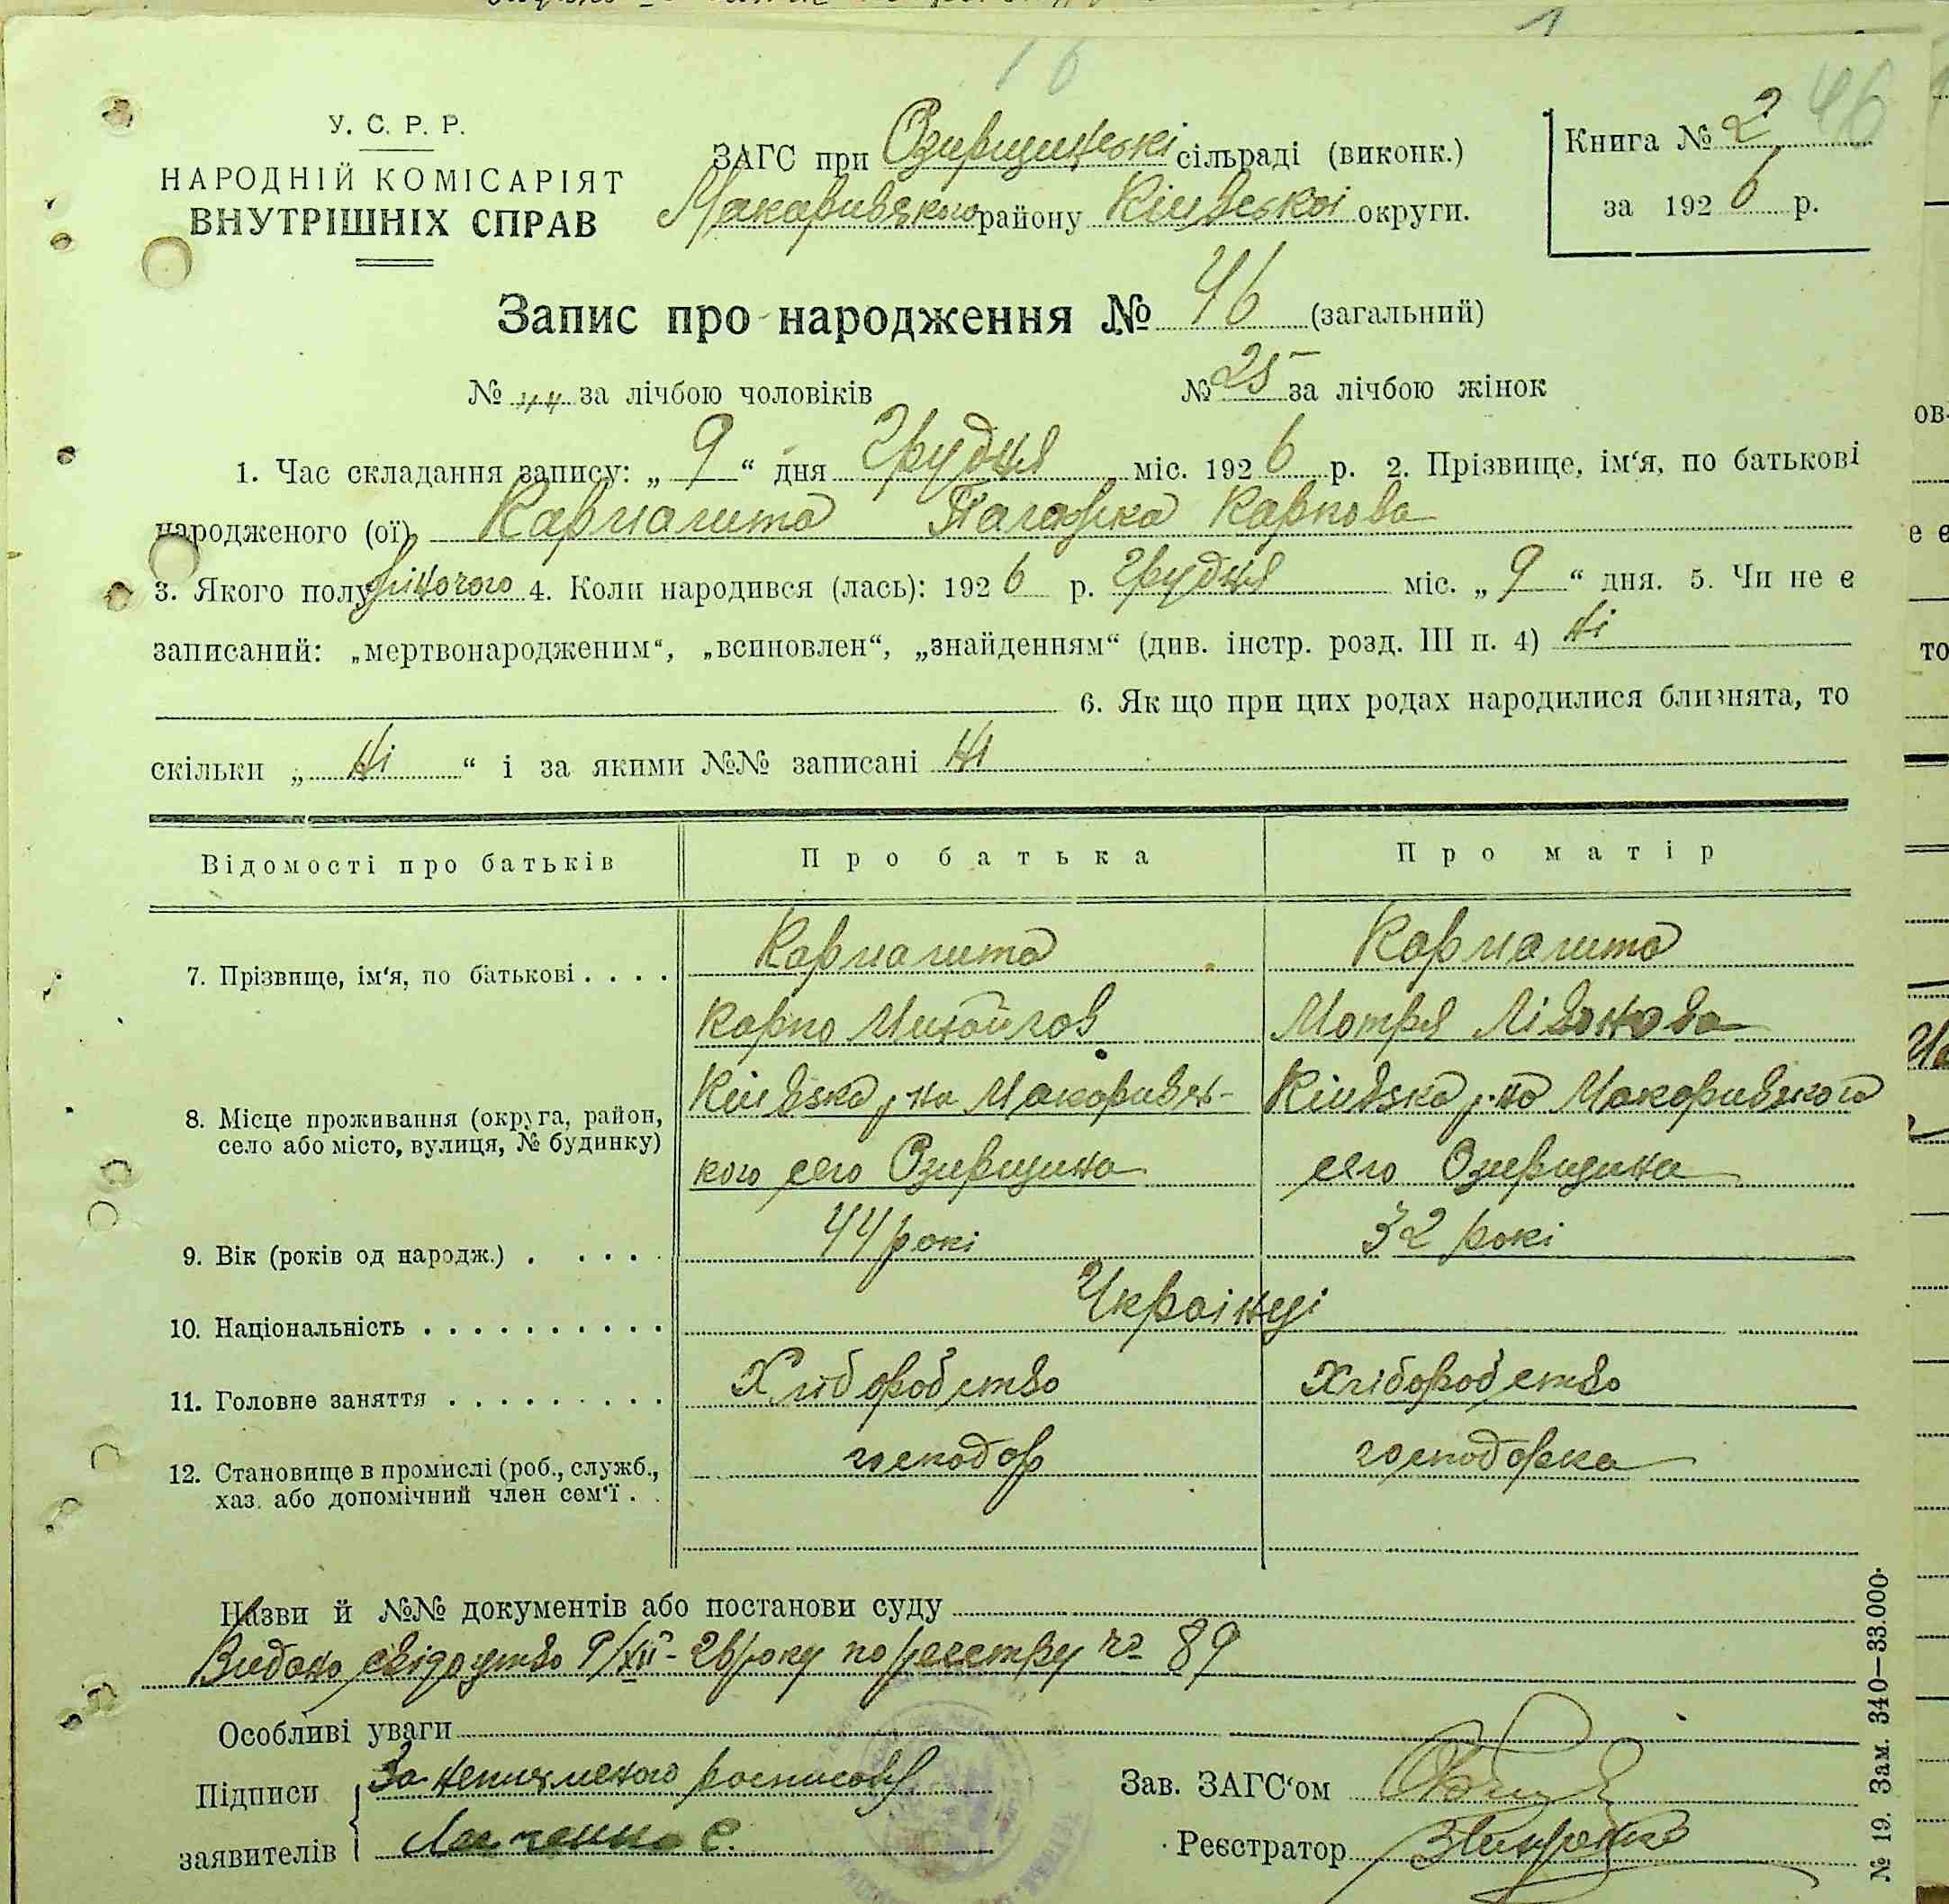 У. С. Р. Р.
НАРОДНІЙ КОМІСАРІЯТ
ВНУТРІШНІХ СПРАВ
ЗАГС при Озирщинські сільраді (виконк.)
Макаривського району Київської округи.
Книга № 2 46
за 1926 р.
Запис про народження № 46 (загальний)
№ за лічбою чоловіків № 25 за лічбою жінок
1. Час складання запису: „ 9 “ дня Грудня міс. 1926 р. 2. Прізвище, ім‘я, по батькові
народженого (ої) Кармалита Палажка Карпова
3. Якого полу жіночого 4. Коли народився (лась): 1926 р. Грудня міс. „ 9 “ дня. 5. Чи не є
записаний: „мертвонародженим“, „всиновлен“, „знайденням“ (див. інстр. розд. III п. 4) Ні
6. Як що при цих родах народилися близнята, то
скільки „ Ні “ і за якими №№ записані Ні
Відомості про батьків Про батька Про матір
7. Прізвище, ім‘я, по батькові . . . . Кармалита Кармалита
Карпо Михайлов Мотря Лівонова
8. Місце проживання (округа, район, село або місто, вулиця, № будинку) Київська, р-на Макаривсь- Київська, р-на Макаривского
кого село Озирщина село Озирщина
9. Вік (років од народж.) . . . . . 44 рокі 32 рокі
10. Національність . . . . . . . . . . Українці
11. Головне заняття . . . . . . . . . Хліборобство Хліборобство
12. Становище в промислі (роб., служб., хаз. або допомічний член сем‘ї . . господар господарка
Назви й №№ документів або постанови суду
Видано свідоцтво 9/XII-26 року по реестру № 89
Особливі уваги
Підписи заявителів За неписменого росписавсь
Зав. ЗАГС‘ом
Реєстратор
№ 19. Зам. 340—33.000.